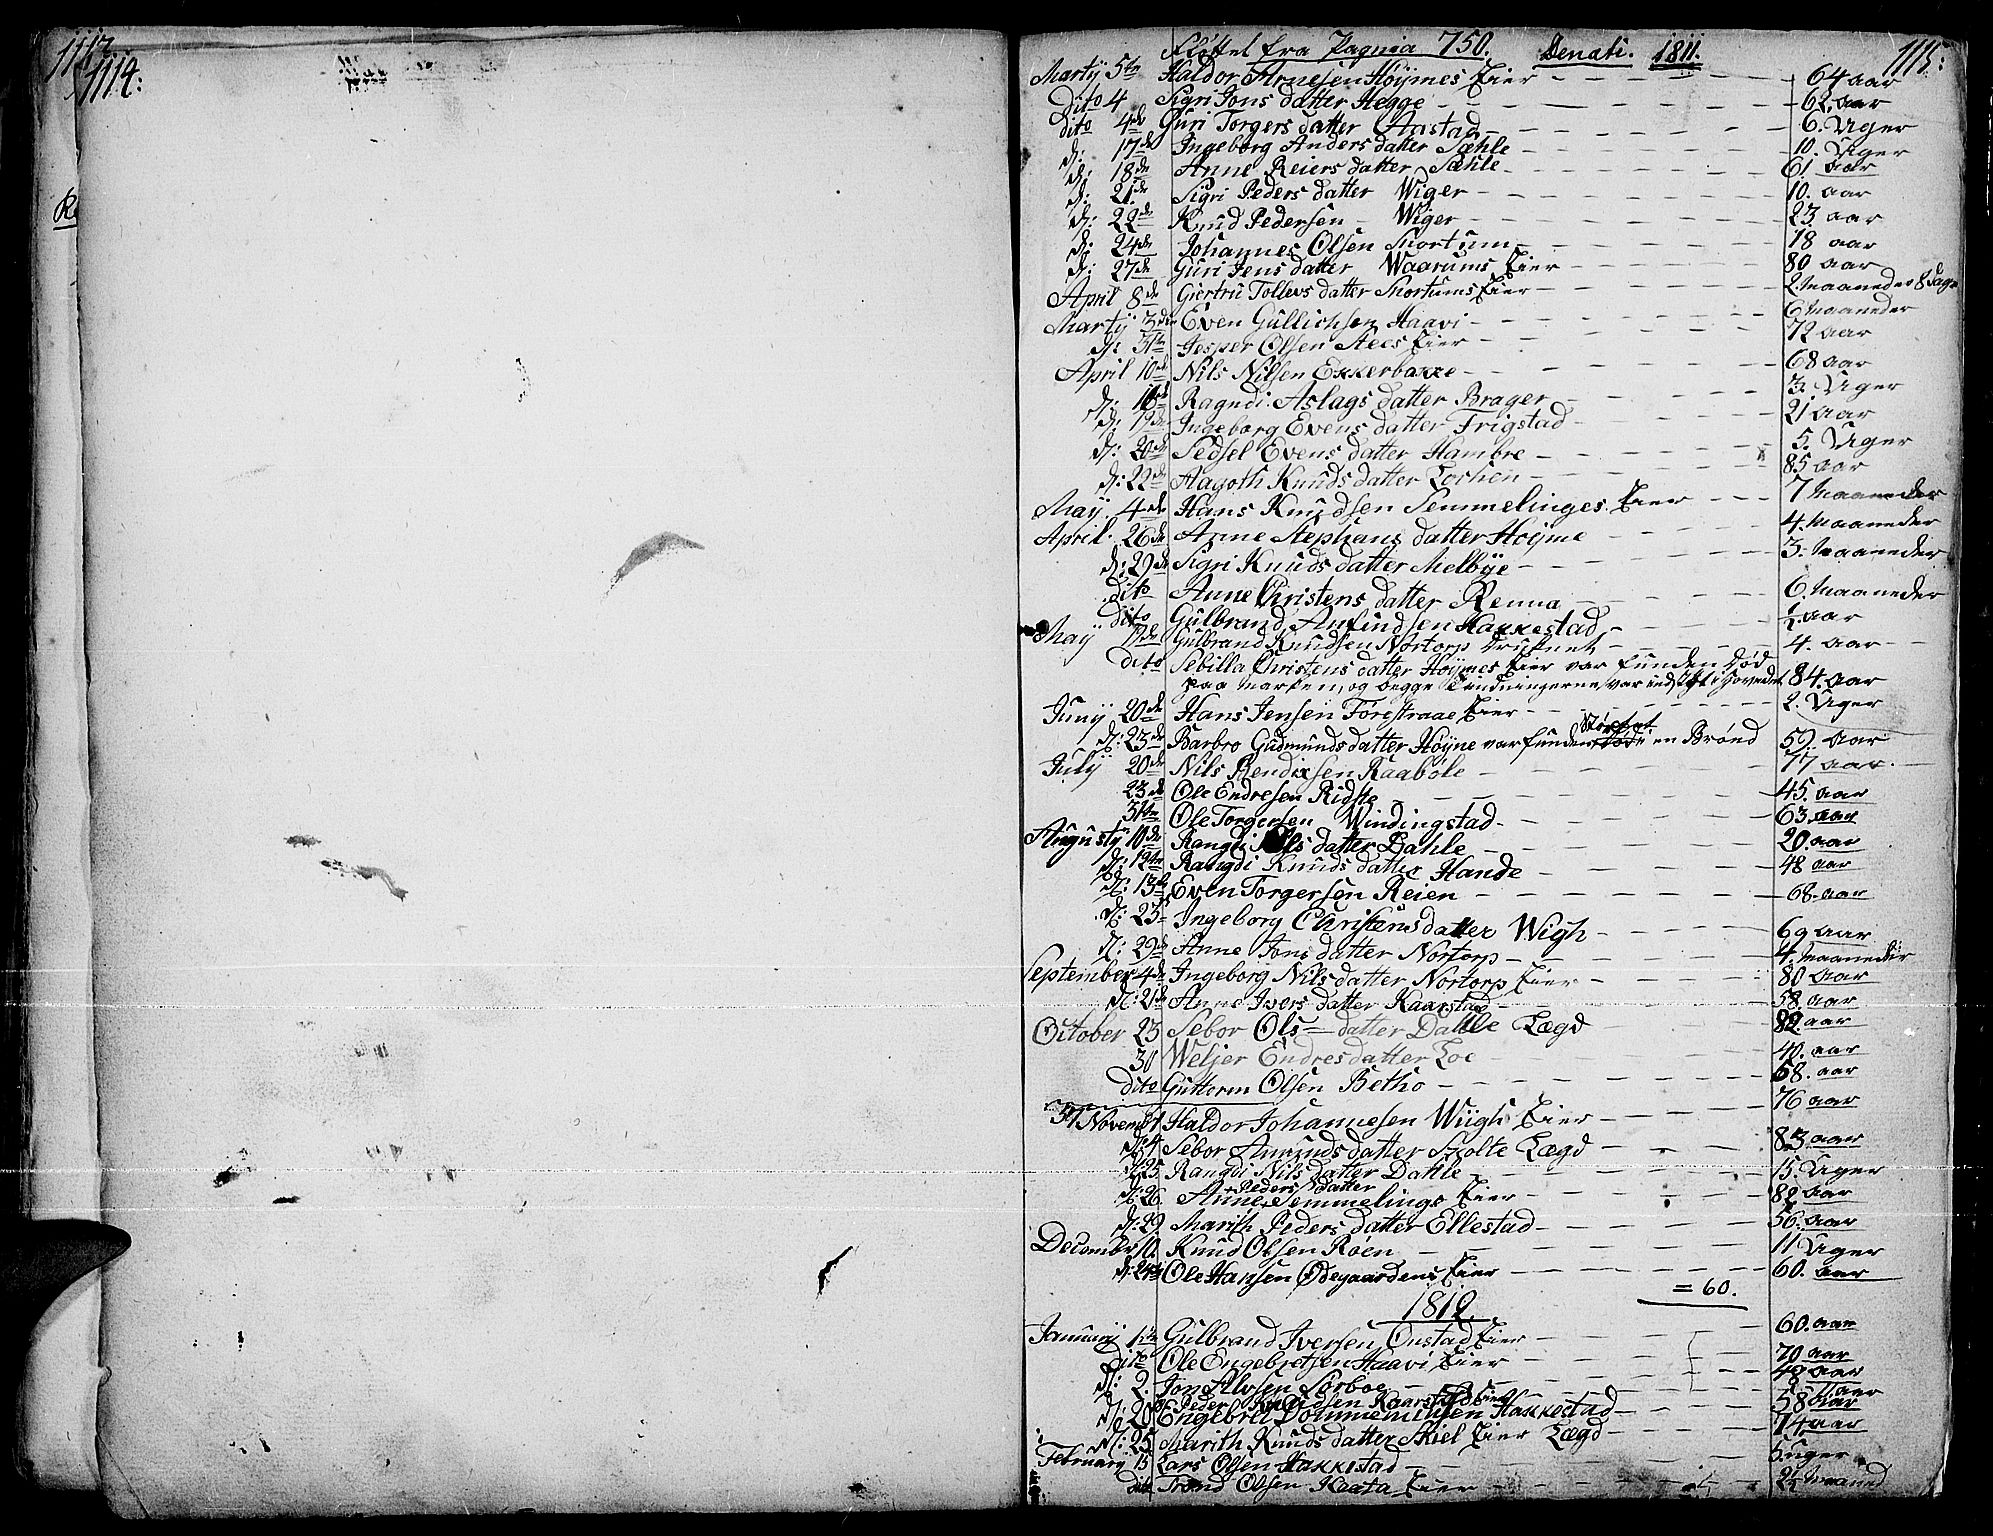 1112
1114:
Fløttet fra Pagina 750. Denati. 1811. 1115:
Martij 5te Haldor Arnesen Høÿmes Eier 64 aar
Dito 4 Sigri Jons datter Hegge 62. aar
dito 4de Guri Torgers datter Aastad 6. Uger
d: 17de Ingeborg Anders datter Sæhle 10. Uger
d: 18de Anne Reiers datter Sæhle 61. aar
d: 21de Sigri Peders datter Wiger 10. aar
d: 22de Knud Pedersen Wiger 23. aar
d: 24de Johannes Olsen Snortum 18 aar
d: 27de Guri Jens datter Waarums Eier 80 aar
April 8de Giertru Tollevs datter Snortums Eier 2. Maaneder 8 Dage
Martij 3die Even Gullichsen Haavi 6 Maaneder
d: 31te Jesper Olsen Eier 72 aar
April 10de Nils Nilsen Ekkerbakke 68 aar
d: 16de Ragndi Aslags datter Brager 3. Uger
d: 19de Ingeborg Evens datter Frigstad 21 aar
d: 20de Sidsel Evens datter Hambre 5. Uger
d: 22de Aagoth Knuds datter Lochen 85 aar
Maij 4de Hans Knudsen Semmelinges Eier 7 Maaneder
April 26de Anne Stephans datter Høÿme 4. Maaneder
d: 29de Sigri Knuds datter Melbÿe 3. Maaneder
dito Anne Christens datter Renna 6. Maaneder
dito Gulbrand Amundsen Hakkestad 1/2 aar
Maij 19de Gulbrand Knudsen Nortorp druknet 4. aar
dito Sebilla Christens datter Høÿmes Eier var funden Død
paa Marken, og begge Tindningerne var indslagt i Hovedet 84. aar
Junij 20de Hans Jensen Forestraae Eier 2. Uger
d: 23de Barbro Gudmunds datter Høÿne var funden Styrtet i en Brønd 59. aar
Julij 20de Nils Bendixsen Raabøle 77 aar.
23de Ole Endresen Ridste 45. aar
31te Ole Torgersen Windingstad 63 aar
Augustij 10de Rangdi Nils datter Dahle 20. aar
d: 12te Rangdi Knuds datter Hande 48 aar
d: 13de Even Torgersen Reien 68. aar
d: 23 Ingeborg Christens datter Wigh 69 aar
d: 29de Anne Jons datter Nortorp 4. Maaneder
September 4de Ingeborg Nils datter Nortorp Eier 80 aar
d: 21de Anne Ivers datter Kaarstad 58 aar
October 23 Sebor Ols datter Dahle Lægd 82 aar
30 Weljer Endres datter Loe 40. aar
dito Guttorm Olsen Betho 68. aar
November Haldor Johannesen Wiigh Eier 76 aar
d: 4 Sebor Amunds datter Skolte Lægd 83 aar
d: 25 Rangdi Nils datter Dahle 15. Uger
d: 26. Anne Peders datter Semmelings Eier 82 aar
d: 29 Marith Peders datter Ellestad 56. aar
Decembr 10. Knud Olsen Røen 11 Uger
d: 24de Ole Hansen Ødegaardens Eier 60. aar
= 60.
1812.
Januarij 1ste Gulbrand Iversen Onstad Eier 60. aar
dito Ole Engebretsen Haavi Eier 70 aar
d: 2. Jon Alvsen Sørboe 48 aar
Peder Knudsen Kaarstad Eier
d: 20 Engebret Hakkestad 58 aar
d: 25 Marith Knuds datter Skiel Eier Lægd 74. aar
February 15 Lars Olsen Hakkestad 5. Uger
dito Trond Olsen Kaxta Eier 2 1/2 Maaned